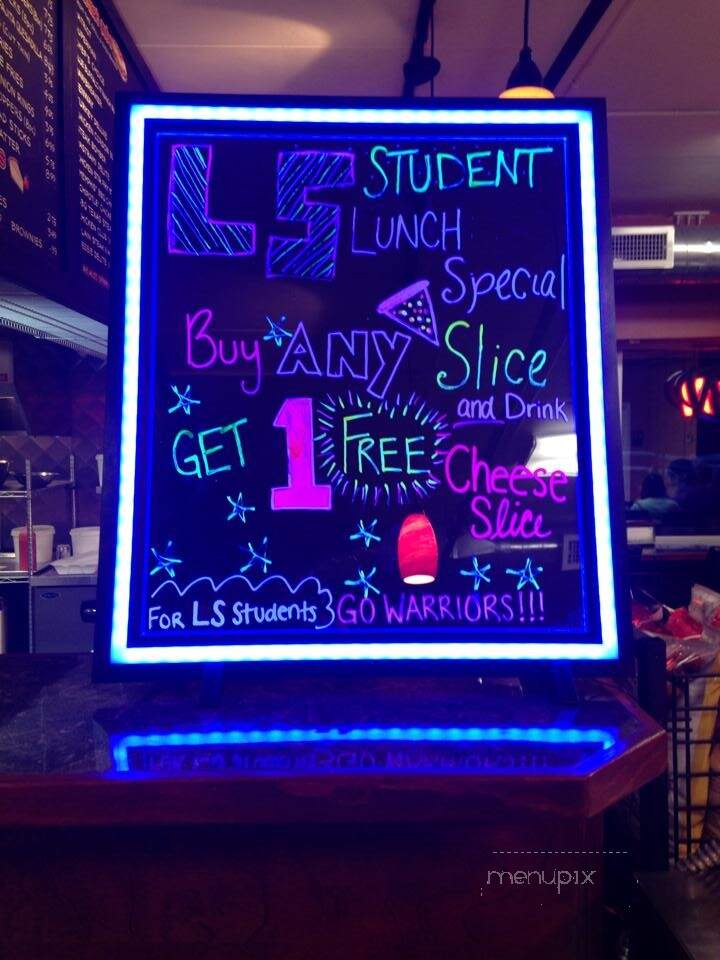 LS STUDENT
LUNCH
Special
Buy ANY Slice
and Drink
GET 1 FREE Cheese
Slice
FOR LS Students GO WARRIORS!!!
BROWNIES
menupix